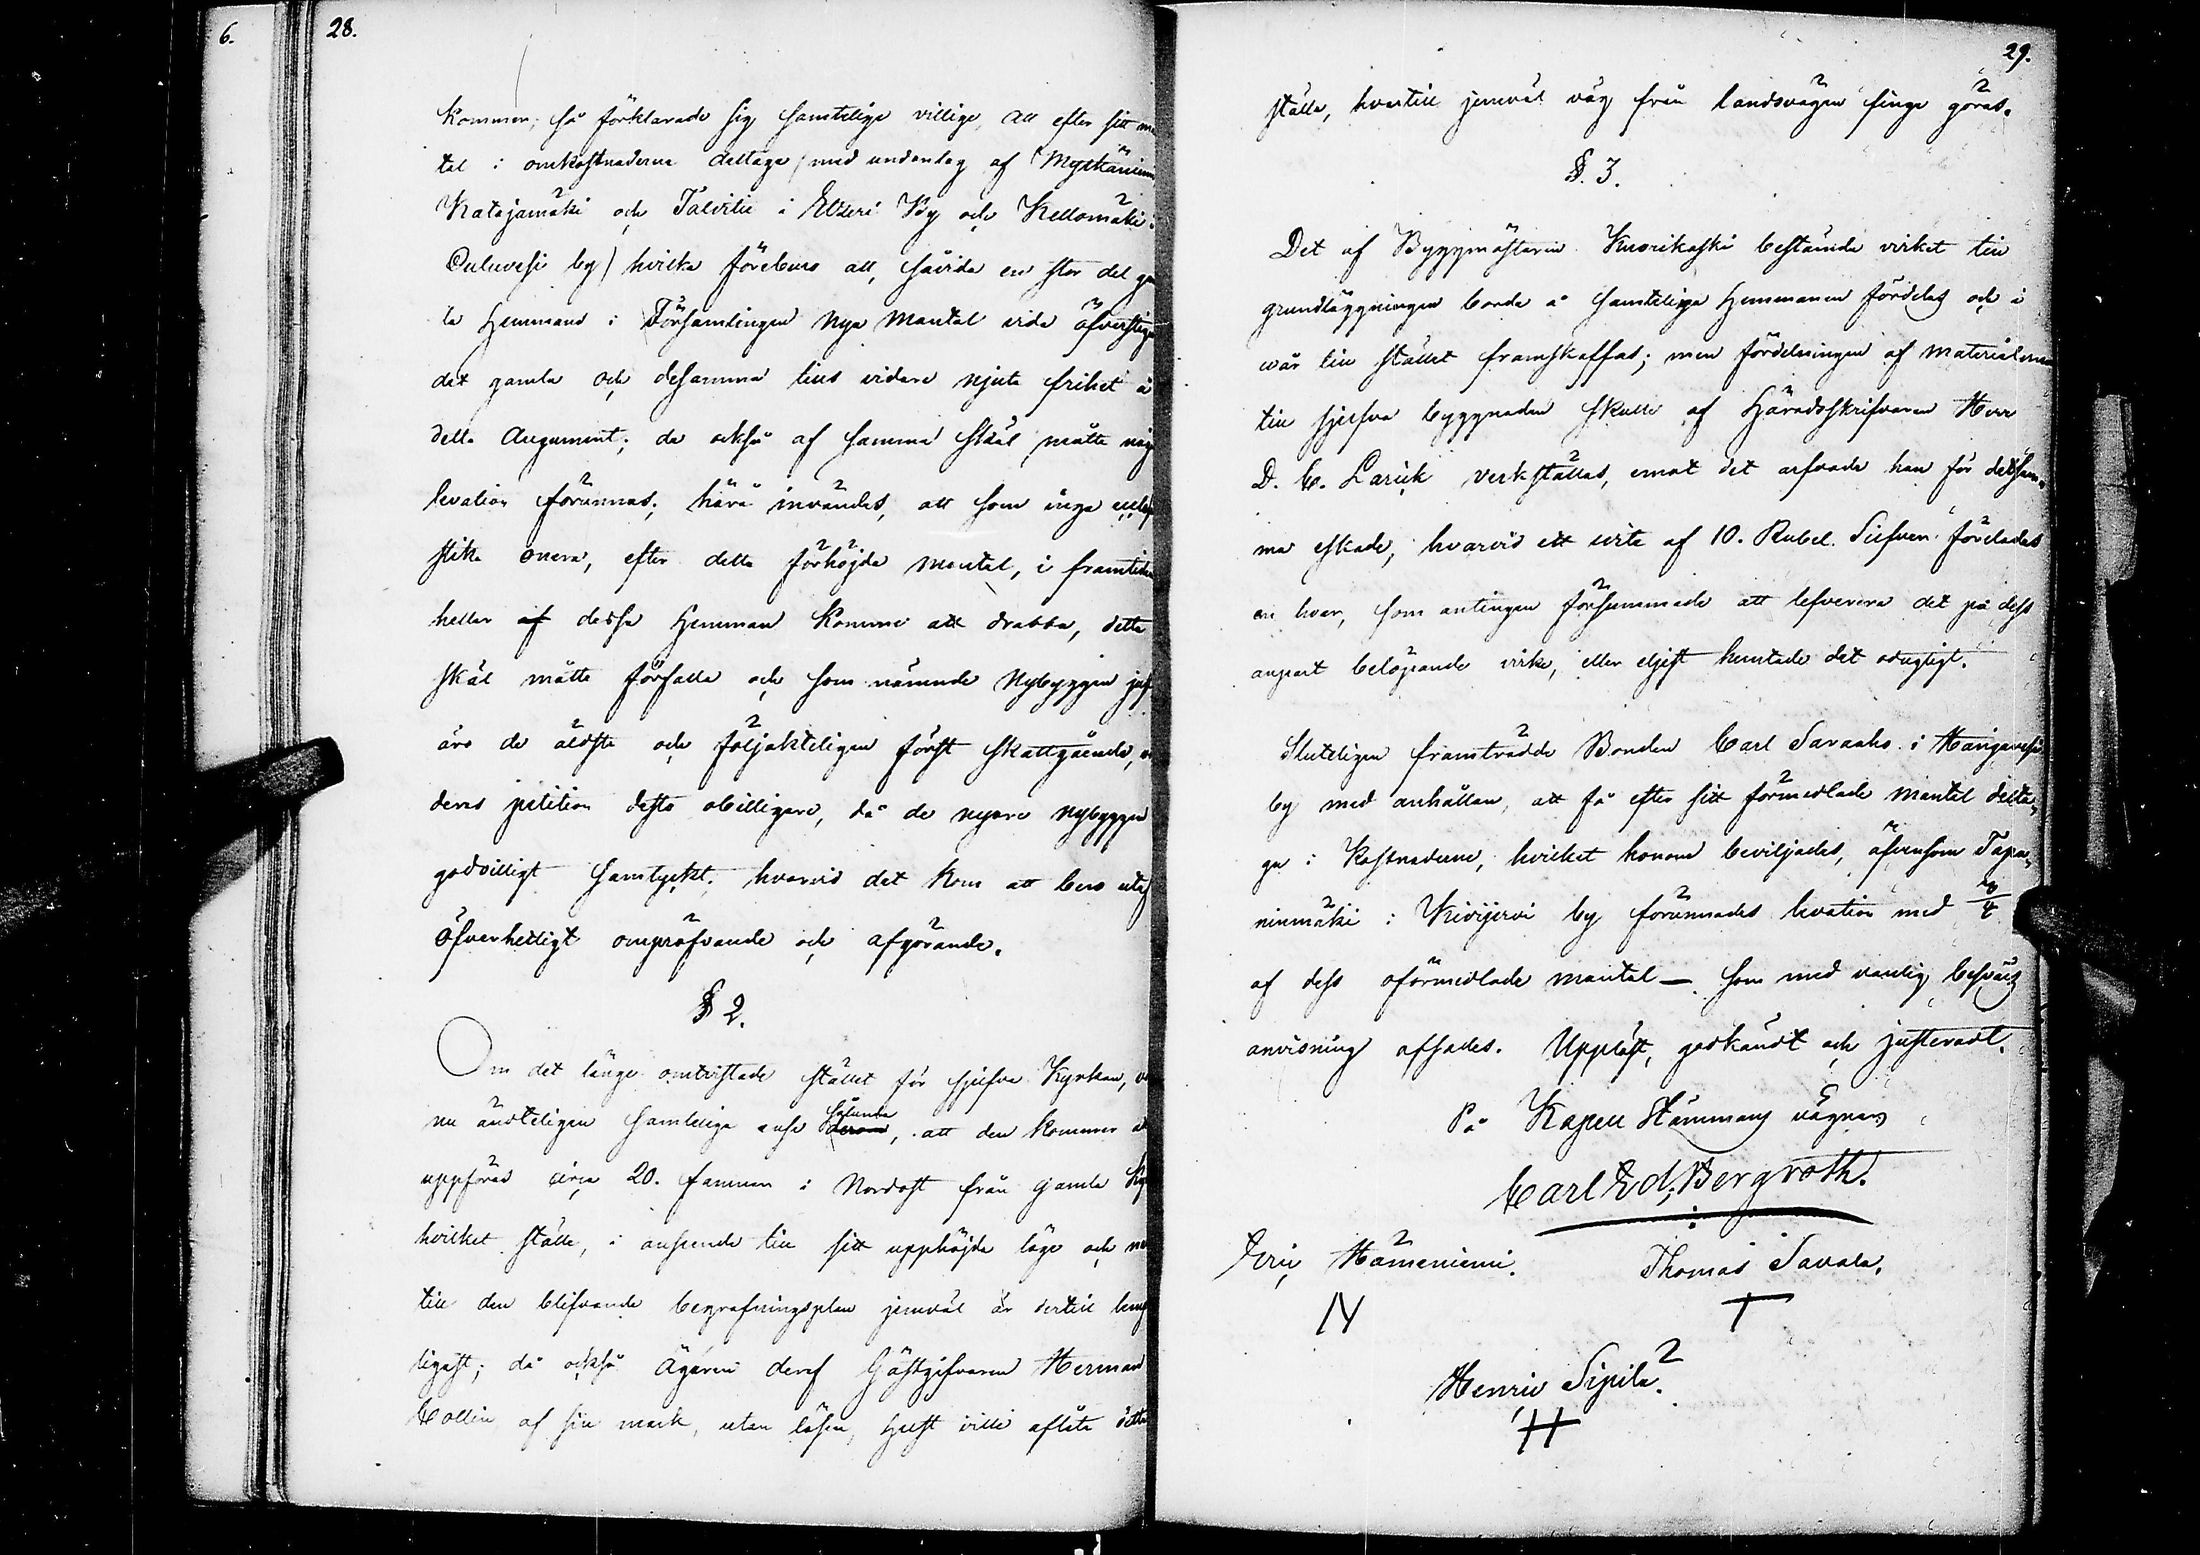 6.
28.
kommer; så förklarade sig samtelige villige, att efter sitt
tal i omkostnaderne deltaga (med undantag af Myllkäniemi
Katajamäki och Talvitie i Etseri By och Kellomäki i
Ouluvesi by) hvilka föreburo att, såvida en stor del
la Hemmans i Församlingen nya mantal vida öfverstiga
det gamla och desamma tills vidare njuta frihet å
detta Augument; de också af samma skäl måtte
levation förunnas; härå invändes, att som inga
stika onera, efter detta förhöjda mantal, i framtiden
heller af dessa Hemman komme att drabba, detta
skäl måtte förfalla och som nämnde Nybyggen
äro de äldste och följakteligen först skattgående,
deras petition desto obilligare, då de nyare nybyggen
godvilligt samtyckt; hvarvid det kom att bero
Öfverhetligt ompröfvande och afgörande.
§ 2.
Om det länge omtvistade stället för sjelfva Kyrkan,
nu ändteligen samtelige ense sålunda, att den kommer
uppföras circa 20. famnar i Nordost från gamla
hvilket ställe, i anseende till sitt upphöjda läge och
till den blifvande begrafningsplan jemväl är dertill
ligast; då också Ägaren deraf Gästgifvaren Herman
Collin af sin mark, utan lösen, helst ville aflåta detta
29.
ställe, hvartill jemväl väg från landsvägen finge göras.
§. 3.
Det af Byggmästaren Kuorikoski bestämda virket till
grundläggningen borde å samtelige Hemmanen fördelas och i
vår till stället framskaffas; men fördelningen af materialerna
till sjelfva byggnaden skulle af Häradsskrifvaren Herr
D. C. Larick verkställas, emot det arfvode han för detsam„
ma eskade, hvarvid ett vite af 10. Rubel Silfver förelades
en hvar, som antingen försummade att lefverera det på dess
anpart belöpande virke, eller eljest hemtade det odugligt.
Sluteligen framträdde Bonden Carl Savaaho i Hangavesi
by med anhållan, att få efter sitt förmedlade mantal delta„
ga i Kostnaderne, hvilket honom beviljades, äfvensom Tapa„
ninmäki i Kivijervi by förunnades levation med
af dess oförmedlade mantal —. som med vanlig besvärs
anvisning afsades. Uppläst, godkändt och justeradt.
På Kapell Stämmans vägnar
Carl Ed. Bergroth.
Eric Hämeniemi.
Thomas Savola.
Henric Sipilä.